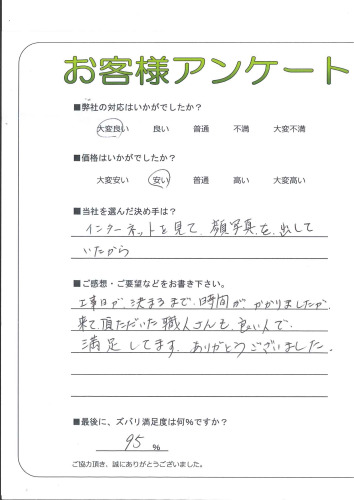 お客様アンケート
■弊社の対応はいかがでしたか？
大変良い 良い 普通 不満 大変不満
■価格はいかがでしたか？
大変安い 安い 普通 高い 大変高い
■当社を選んだ決め手は？
インターネットを見て、顔写真を出して
いたから
■ご感想・ご要望などをお書き下さい。
工事日が決まるまで、時間がかかりましたが、
来て頂ただいた職人さんも良い人で、
満足してます。ありがとうございました。
■最後に、ズバリ満足度は何%ですか？
95 %
ご協力頂き、誠にありがとうございました。